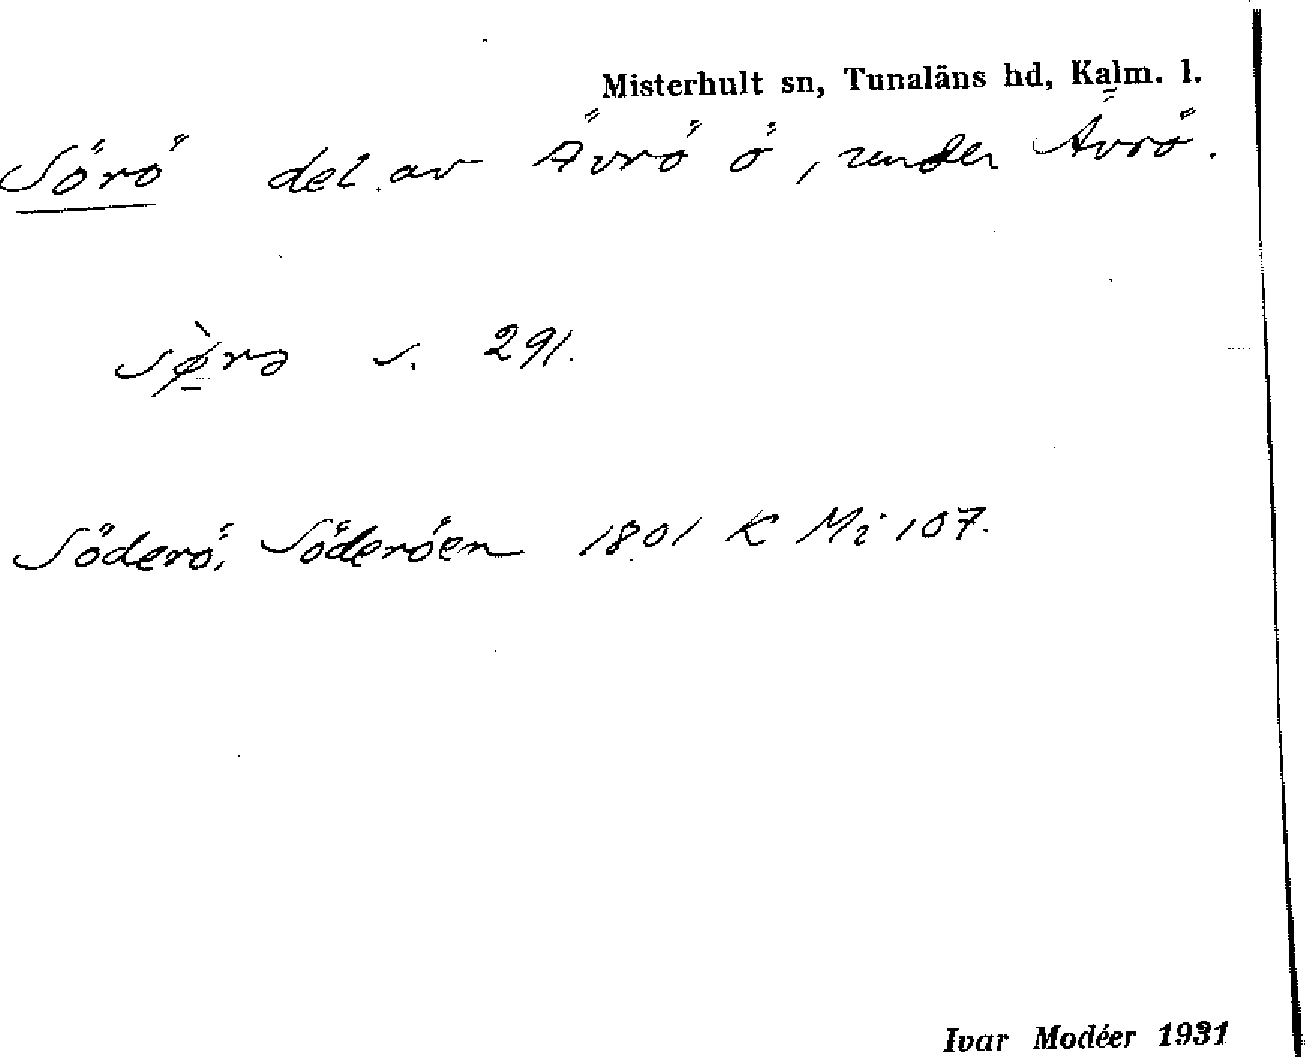 Misterhult sn, Tunaläns hd, Kalm. l.
Sörö del av Ävrö ö, under Ävrö.
s. 291.
Söderö, Söderöen 1801 K Mi 107.
Ivar Modéer 1931